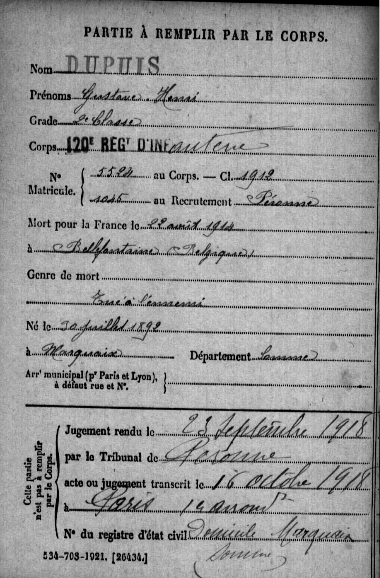 PARTIE À REMPLIR PAR LE CORPS.
Nom DUPUIS
Prénoms Gustave Henri
Grade 2e Classe
Corps 120E REGT D'INFanterie
No 5524 au Corps. — Cl. 1912
Matricule. 1045 au Recrutement Péronne
Mort pour la France le 22 août 1914
à Bellefontaine (Belgique)
Genre de mort
Tué à l'ennemi
Né le 30 juillet 1892
à Marquaix Département Somme
Arrt municipal (pr Paris et Lyon),
à défaut rue et No.
Cette partie
n'est pas à remplir
par le Corps.
Jugement rendu le 23 Septembre 1918
par le Tribunal de Péronne
acte ou jugement transcrit le 16 octobre 1918
à Paris
No du registre d'état civil Domicile Marquaix
(Somme)
534-708-1921. [26434.]